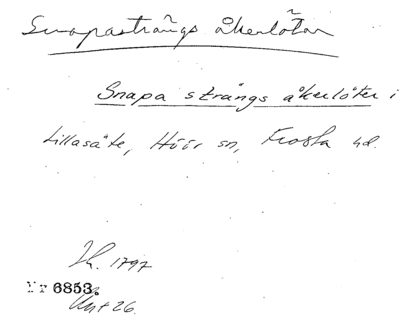 Snapasträngs åkerlötar
Snapa strängs åkerlöter i
Lillasäte, Höör sn, Frosta hd.
Jh. 1797
Nr 6853.
Akt 26.